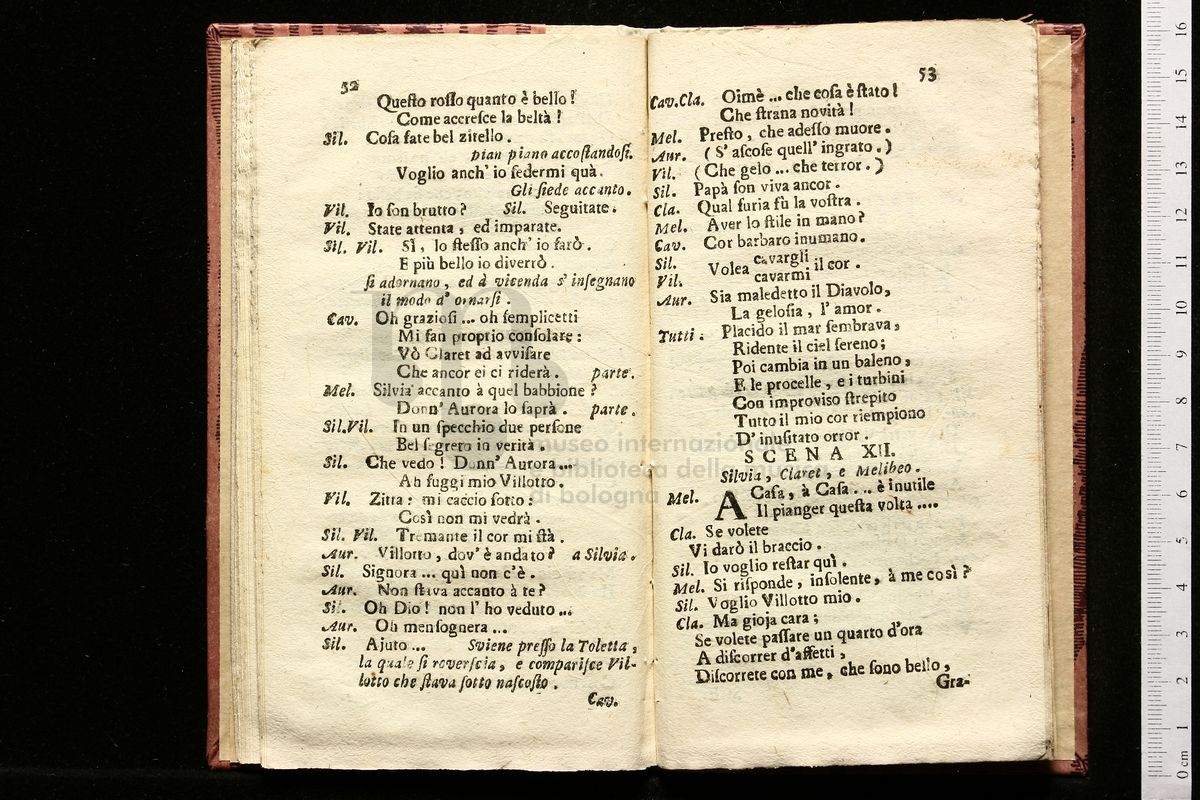 52
Questo rosso quanto è bello!
Come accresce la beltà!
Sil. Cosa fate bel zitello.
pian piano accostandosi.
Voglio anch' io sedermi quà.
Gli siede accanto.
Vil. Io son brutto? Sil. Seguitate.
Vil. State attenta, ed imparate.
Sil. Vil. Sì, lo stesso anch' io farò.
E più bello io diverrò.
si adornano, ed à vicenda s' insegnano
il modo d' ornarsi.
Cav. Oh graziosi ... oh semplicetti
Mi fan proprio consolare:
Vò Claret ad avvisare
Che ancor ei ci riderà. parte.
Mel. Silvia accanto à quel babbione?
Donn' Aurora lo saprà. parte.
Sil.Vil. In un specchio due persone
Bel segreto in verità.
Sil. Che vedo! Donn' Aurora...
Ah fuggi mio Villotto.
Vil. Zitta: mi caccio sotto:
Così non mi vedrà.
Sil. Vil. Tremante il cor mi stà.
Aur. Villotto, dov' è andato? a Silvia.
Sil. Signora ... quì non c'è.
Aur. Non stava accanto à te?
Sil. Oh Dio! non l' ho veduto ...
Aur. Oh mensognera ...
Sil. Ajuto ... Sviene presso la Toletta,
la quale si roverscia, e comparisce Vil-
lotto che stava sotto nascosto.
Cav.
53
Cav.Cla. Oimè ... che cosa è stato!
Che strana novità!
Mel. Presto, che adesso muore.
Aur. (S' ascose quell' ingrato.)
Vil. (Che gelo ... che terror.)
Sil. Papà son viva ancor.
Cla. Qual furia fù la vostra.
Mel. Aver lo stile in mano?
Cav. Cor barbaro inumano.
Sil. Volea cavargli il cor.
Vil. cavarmi
Aur. Sia maledetto il Diavolo,
La gelosia, l' amor.
Tutti. Placido il mar sembrava,
Ridente il ciel sereno;
Poi cambia in un baleno,
E le procelle, e i turbini
Con improviso strepito
Tutto il mio cor riempiono
D' inusitato orror.
SCENA XII.
Silvia, Claret, e Melibeo.
Mel. A Casa, à Casa ... è inutile
Il pianger questa volta ....
Cla. Se volete
Vi darò il braccio.
Sil. Io voglio restar quì.
Mel. Si risponde, insolente, à me così?
Sil. Voglio Villotto mio.
Cla. Ma gioja cara;
Se volete passare un quarto d'ora
A discorrer d'affetti,
Discorrete con me, che sono bello,
Gra-
museo internazionale
e biblioteca della musica
di bologna
0 cm 1 2 3 4 5 6 7 8 9 10 11 12 13 14 15 16